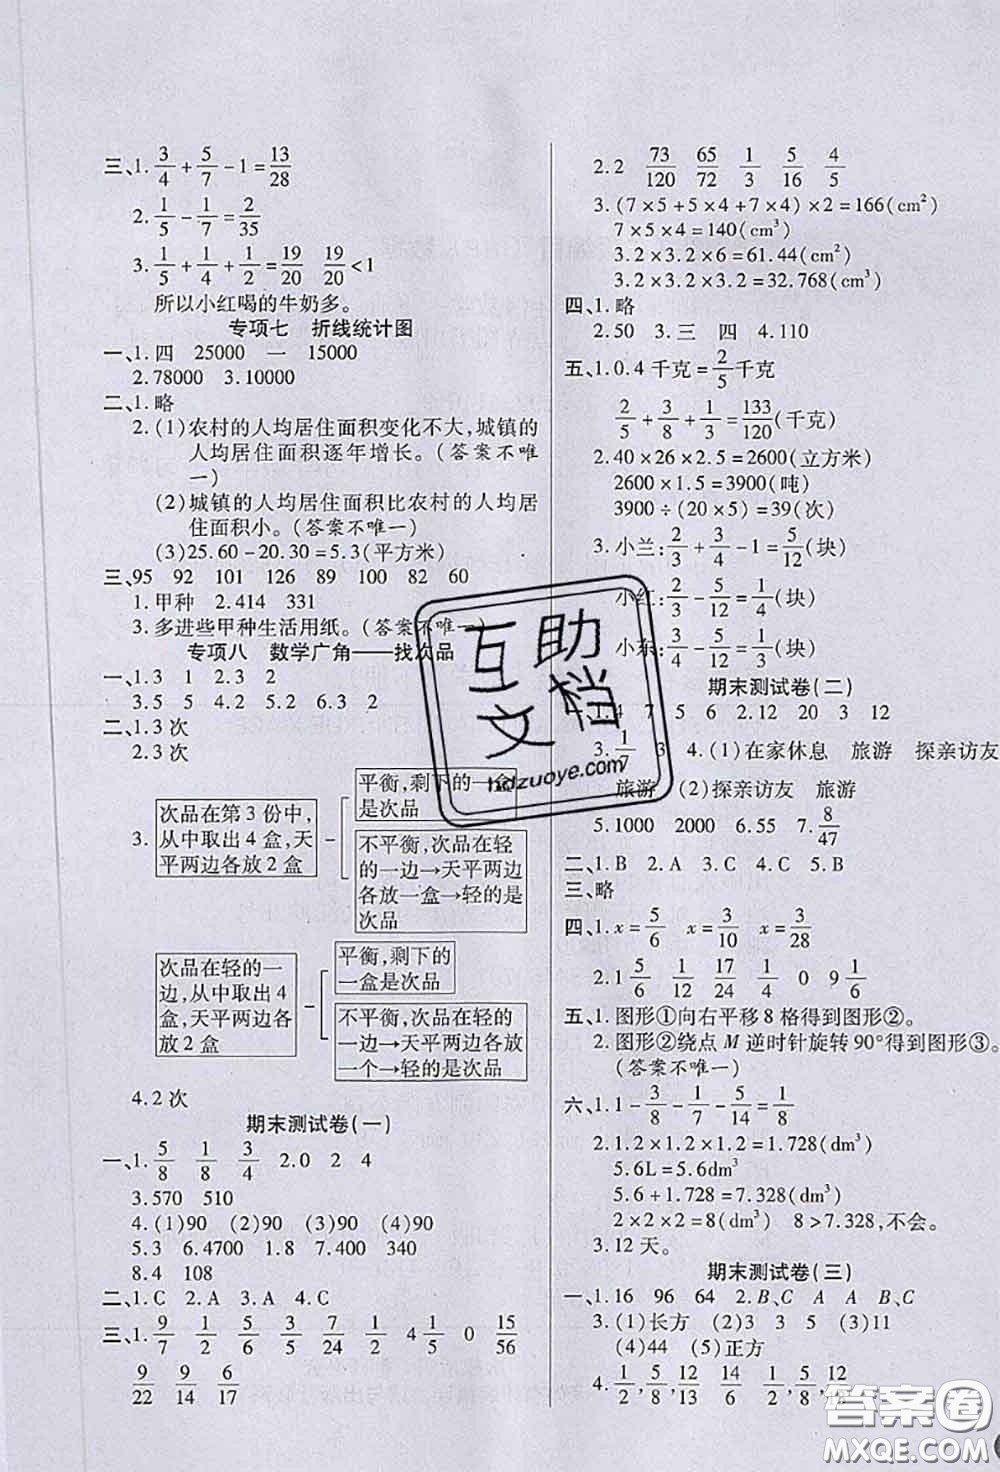 三、1. 3/4 + 5/7 - 1 = 13/28
2. 1/5 - 1/7 = 2/35
3. 1/5 + 1/4 + 1/2 = 19/20  19/20 < 1
所以小红喝的牛奶多。
专项七 折线统计图
一、1.四 25000 一 15000
2.78000 3.10000
二、1.略
2.(1)农村的人均居住面积变化不大,城镇的
人均居住面积逐年增长。(答案不唯
一)
(2)城镇的人均居住面积比农村的人均居
住面积小。(答案不唯一)
(3)25.60-20.30=5.3(平方米)
三、95 92 101 126 100 108 82 60
1.甲种 2.414 331
3.多进些甲种生活用纸。(答案不唯一)
专项八 数学广角——找次品
一、1.3 1 2.3 2
3.5 5 4.2 5.2 6.3 2
二、1.3 次
2.3 次
3.
次品在第 3 份中,
从中取出 4 盒,天
平两边各放 2 盒
平衡,剩下的一盒
是次品
不平衡,次品在轻
的一边→天平两边
各放一盒→轻的是
次品
次品在轻的一
边,从中取出 4
盒,天平两边各
放 2 盒
平衡,剩下的
一盒是次品
不平衡,次品在轻的
一边→天平两边各放
一个→轻的是次品
4.2 次
期末测试卷(一)
一、1. 5/8 1/8 3/4 2.0 2 4
3.570 510
4.(1)90 (2)90 (3)90 (4)90
5.3 6.4700 1.8 7.400 340
8.4 108
二、1.C 2.A 3.A 4.C
三、1. 9/7 1/2 5/6 3/5 7/24 1/2 4 1/5 0 15/56
9/22 9/14 6/17
2.2 73/120 65/72 1/3 5/16 4/5
3.(7×5+5×4+7×4)×2=166(cm²)
7×5×4=140(cm³)
3.2×3.2×6=61.44(cm²)
3.2×3.2×3.2=32.768(cm³)
四、1.略
2.50 3.三 四 4.110
五、1.0.4 千克=2/5千克
2/5 + 3/8 + 1/3 = 133/120(千克)
2.40×26×2.5=2600(立方米)
2600×1.5=3900(吨)
3900÷(20×5)=39(次)
3.小兰: 2/3 + 3/4 - 1 = 5/12(块)
小红: 2/3 - 5/12 = 1/4(块)
小东: 2/3 - 1/4 = 5/12(块)
期末测试卷(二)
一、1.4 7 5 6 2.12 20 3 12
3. 1/7 3 4.(1)在家休息 旅游 探亲访友
旅游 (2)探亲访友 旅游
5.1000 2000 6.55 7. 8/47
二、1.B 2.A 3.C 4.C 5.B
三、略
四、1. x=5/6 x=3/10 x=3/28
2.1 5/6 1/12 17/24 1/4 0 9 1/2
五、1.图形①向右平移 8 格得到图形②。
2.图形②绕点 M 逆时针旋转 90°得到图形③。
(答案不唯一)
六、1.1 - 3/8 - 1/7 - 5/14 = 1/8
2.1.2×1.2×1.2=1.728(dm³)
5.6L=5.6dm³
5.6+1.728=7.328(dm³)
2×2×2=8(dm³) 8>7.328,不会。
3.12 天。
期末测试卷(三)
一、1.16 96 64 2.B、C A A B、C
3.(1)长方 (2)3 3 5 (3)11
(4)44 (5)正方
4. 1/2, 5/8, 12/13 14/6 1/2, 5/8, 12/13
互助
文档
hdzuoye.com
答案圈
MXQE.COM